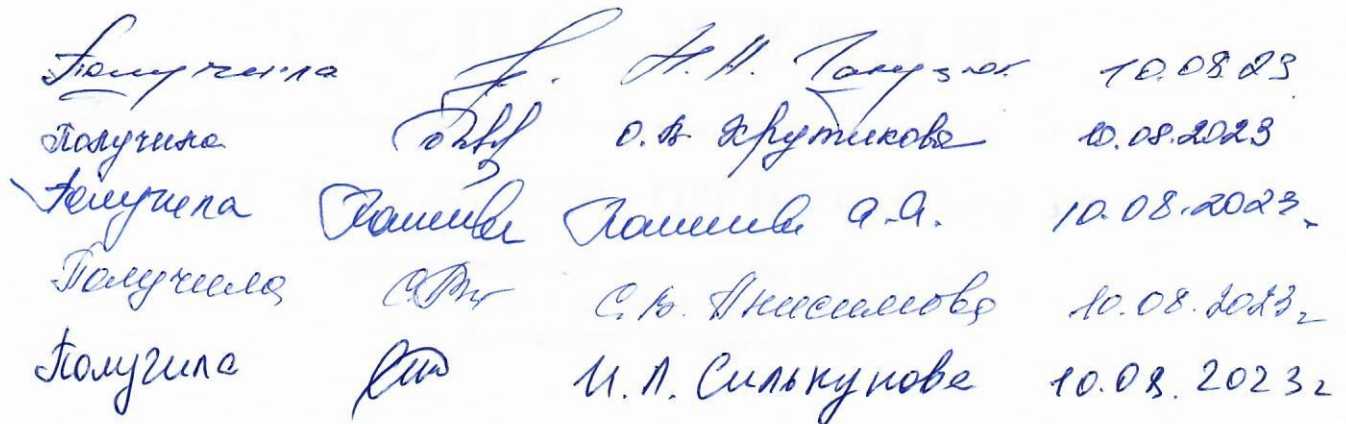 Получила Н.Н. 10.08.23
Получила О.В. Хрутикова 10.08.2023
Получила А.А. 10.08.2023г
Получила С.В. Анисимова 10.08.2023г
Получила И.Л. Силькунова 10.08.2023г